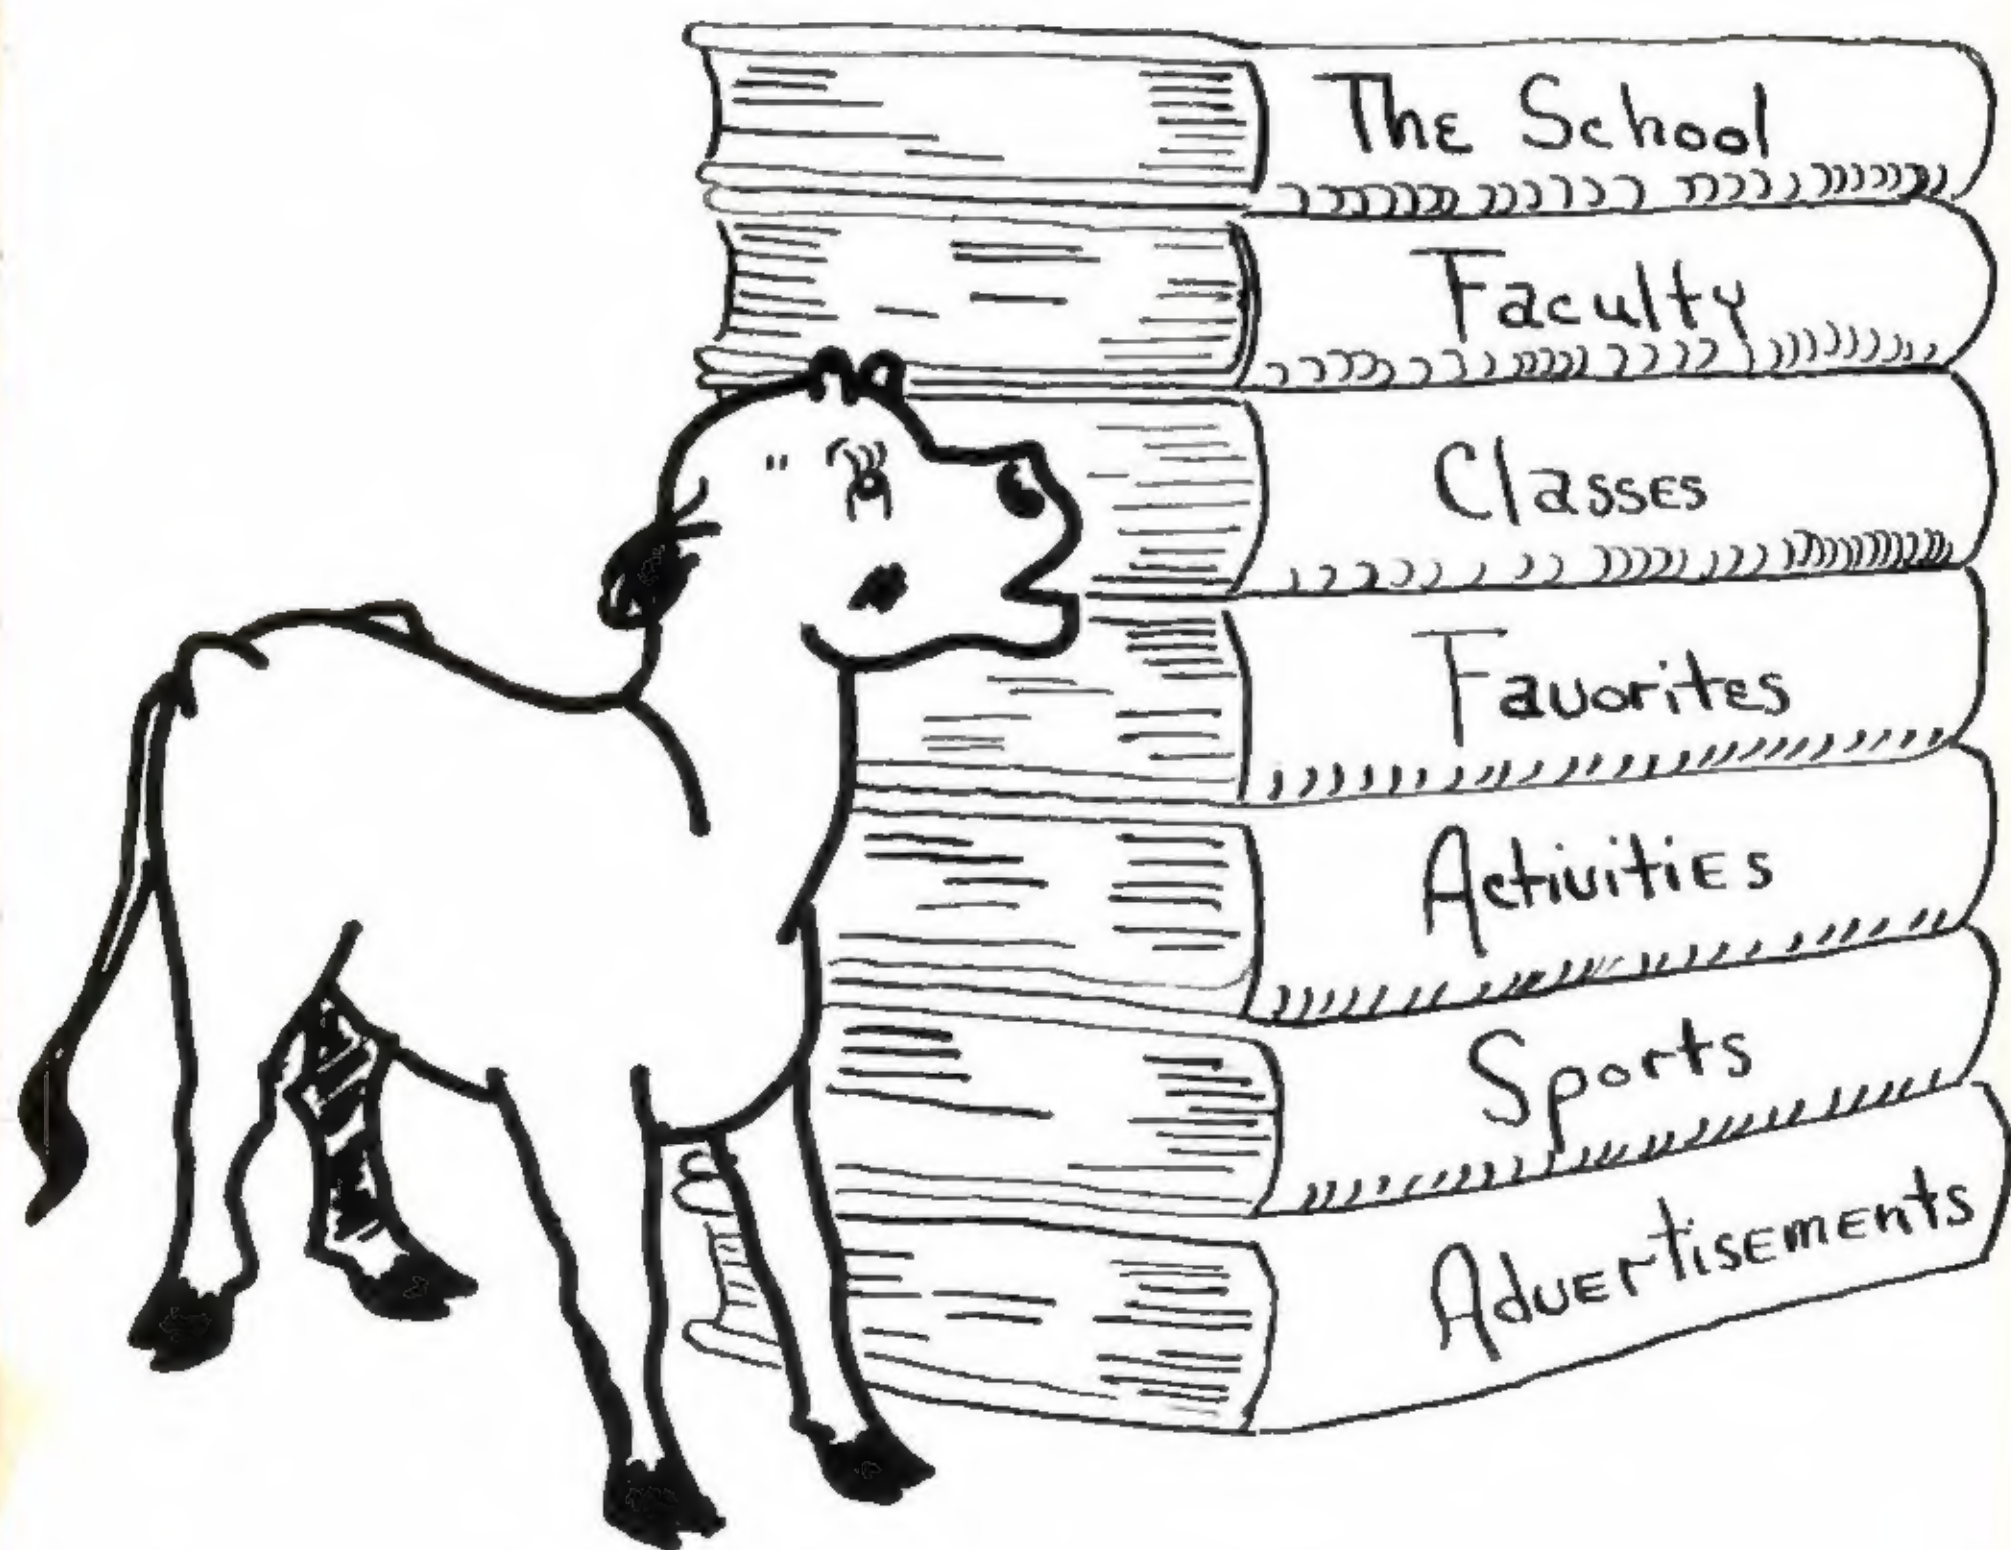 The School
Faculty
Classes
Favorites
Activities
Sports
Advertisements